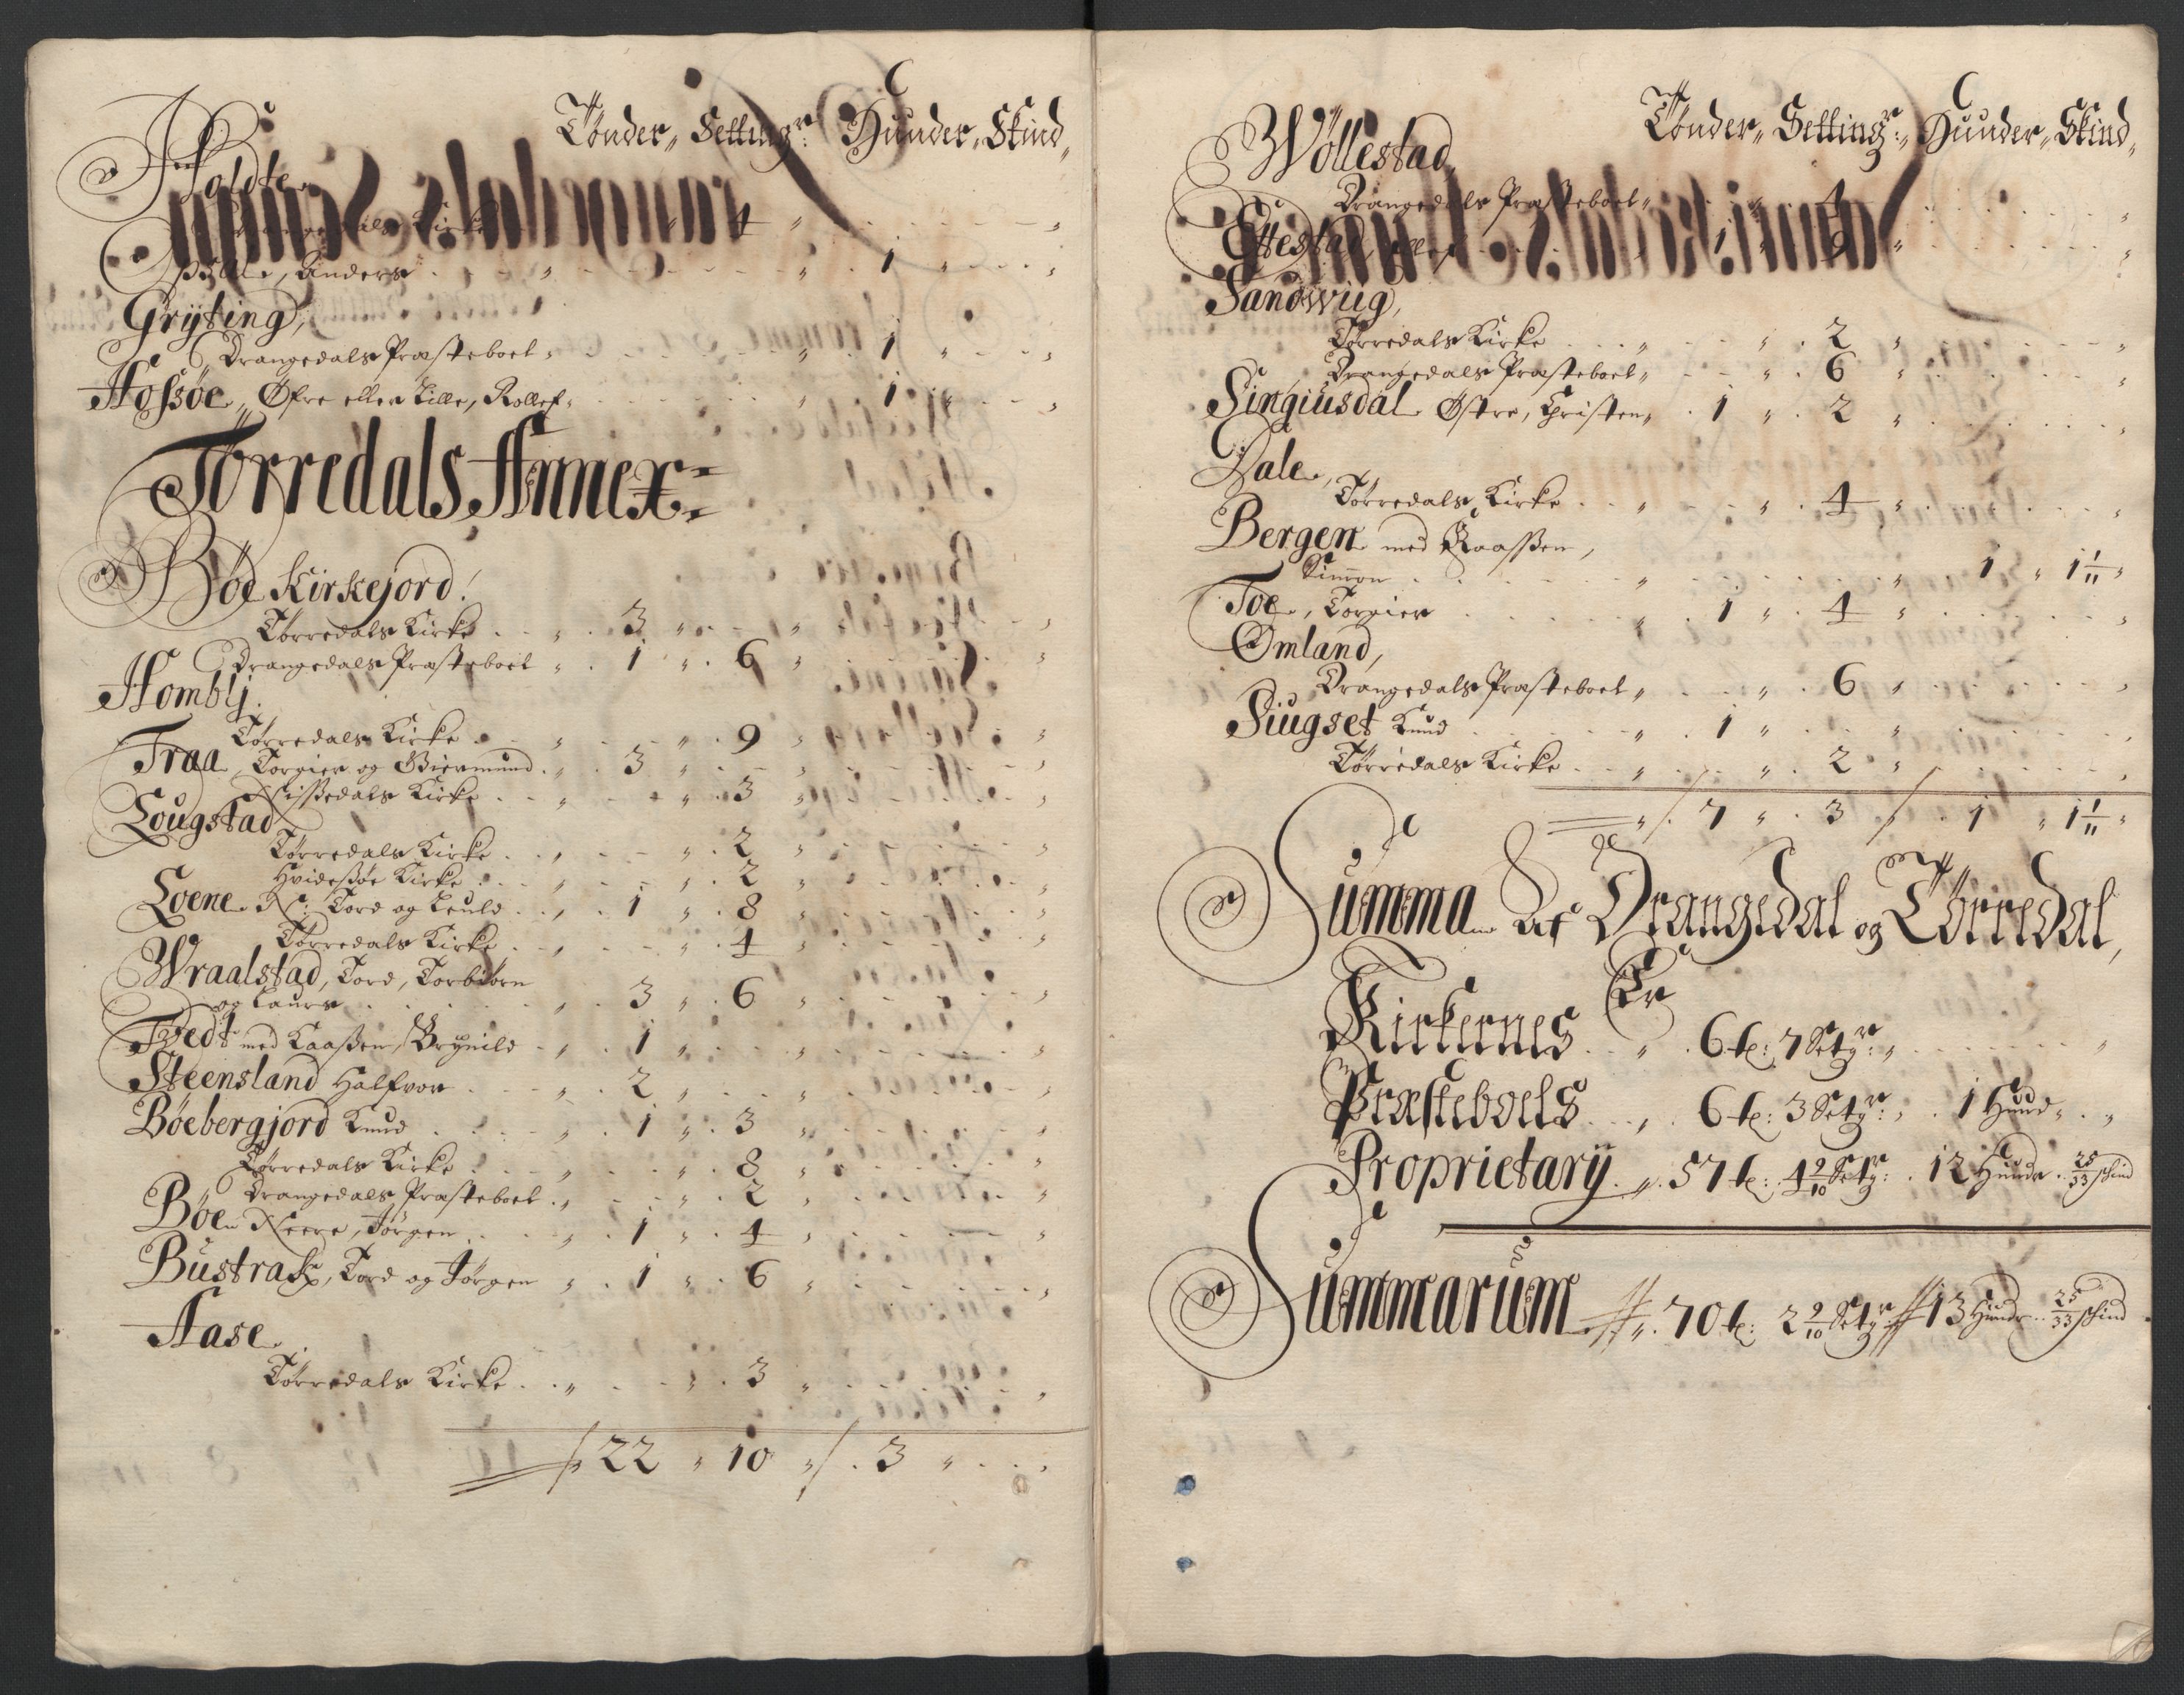 Tönder„ Setting:r Huuder„ Skind„
Holdte„
Drangedals Kirke „ 4 „ „
Anders „ „ 1 „
Grÿting,
Drangedals Præsteboel „ „ 1 „
Fossöe„ Øfre eller Lille, Rollef „ 1 „
Törredals Annex
Böe Kirkejord!
Törredals Kirke „ 3 „ „
Drangedals Præsteboel „ 1 „ 6 „
Hombly.
Törredals Kirke „ „ 9 „
Traa Torgier og Giermund „ 3 „ „
Nissedals Kirke „ „ 3 „
Lougstad
Törredals Kirke „ „ 2 „
Hvidessöe Kirke „ „ 2 „
Loene N: Tord og Leuld „ 1 „ 8 „
Törredals Kirke „ „ 4 „
Wraalstad, Tord, Torbiörn
og Laurs „ 3 „ 6 „
Tvedt med Kaassen, Brynild „ 1 „
Steensland Halfvor „ 2 „
Böebergjord Knud „ 1 „ 3 „
Törredals Kirke „ „ 8 „
Drangedals Præsteboel „ „ 2 „
Böe Neere, Jörgen „ 1 „ 4 „
Bustrak, Tord og Jörgen „ 1 „ 6 „
Aase
Törredals Kirke „ „ 3 „
„ 22 „ 10 „ 3 „
Tönder„ Setting:r„ Huuder„ Skind„
Wöllestad
Drangedals Præsteboel„ „ 4 „
Ettestad, 1 „ 9 „
Sandwiig,
Törredals Kirke „ „ 2 „
Drangedals Præsteboel„ „ 6 „
Singiusdal Østre, Christen„ 1 „ 2 „
Dale,
Törredals Kirke „ „ 4 „
Bergen med Raassen,
Simon „ „ 1 „ 1 1/11 „
Toe, Torgier „ 1 „ 4 „
Omland,
Drangedals Præsteboel„ „ 6 „
Siugset Knud „ 1 „ „
Törredals Kirke „ „ 2 „
„ 7 „ 3 1 „ 1 1/11 „
Summa Af Drangedal og Törredal,
Kirkernes „ 6 t: 7 Setgr: „
Præsteboels „ 6 t: 3 Setgr: „ 1 Hud „
Proprietarÿ „ 57 t: 4 9/10 Setgr: 12 Huder 25/33 skind
Summarum „ 70 t: 2 9/10 Setgr 13 Huder 25/33 skind